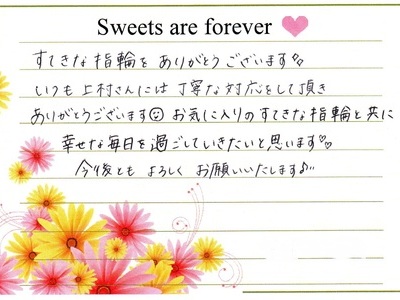 Sweets are forever
すてきな指輪を ありがとうございます
いつも上村さんには丁寧な対応をして頂き
ありがとうございます☺ お気に入りのすてきな指輪と共に
幸せな毎日を過ごしていきたいと思います
今後とも よろしく お願いいたします♪